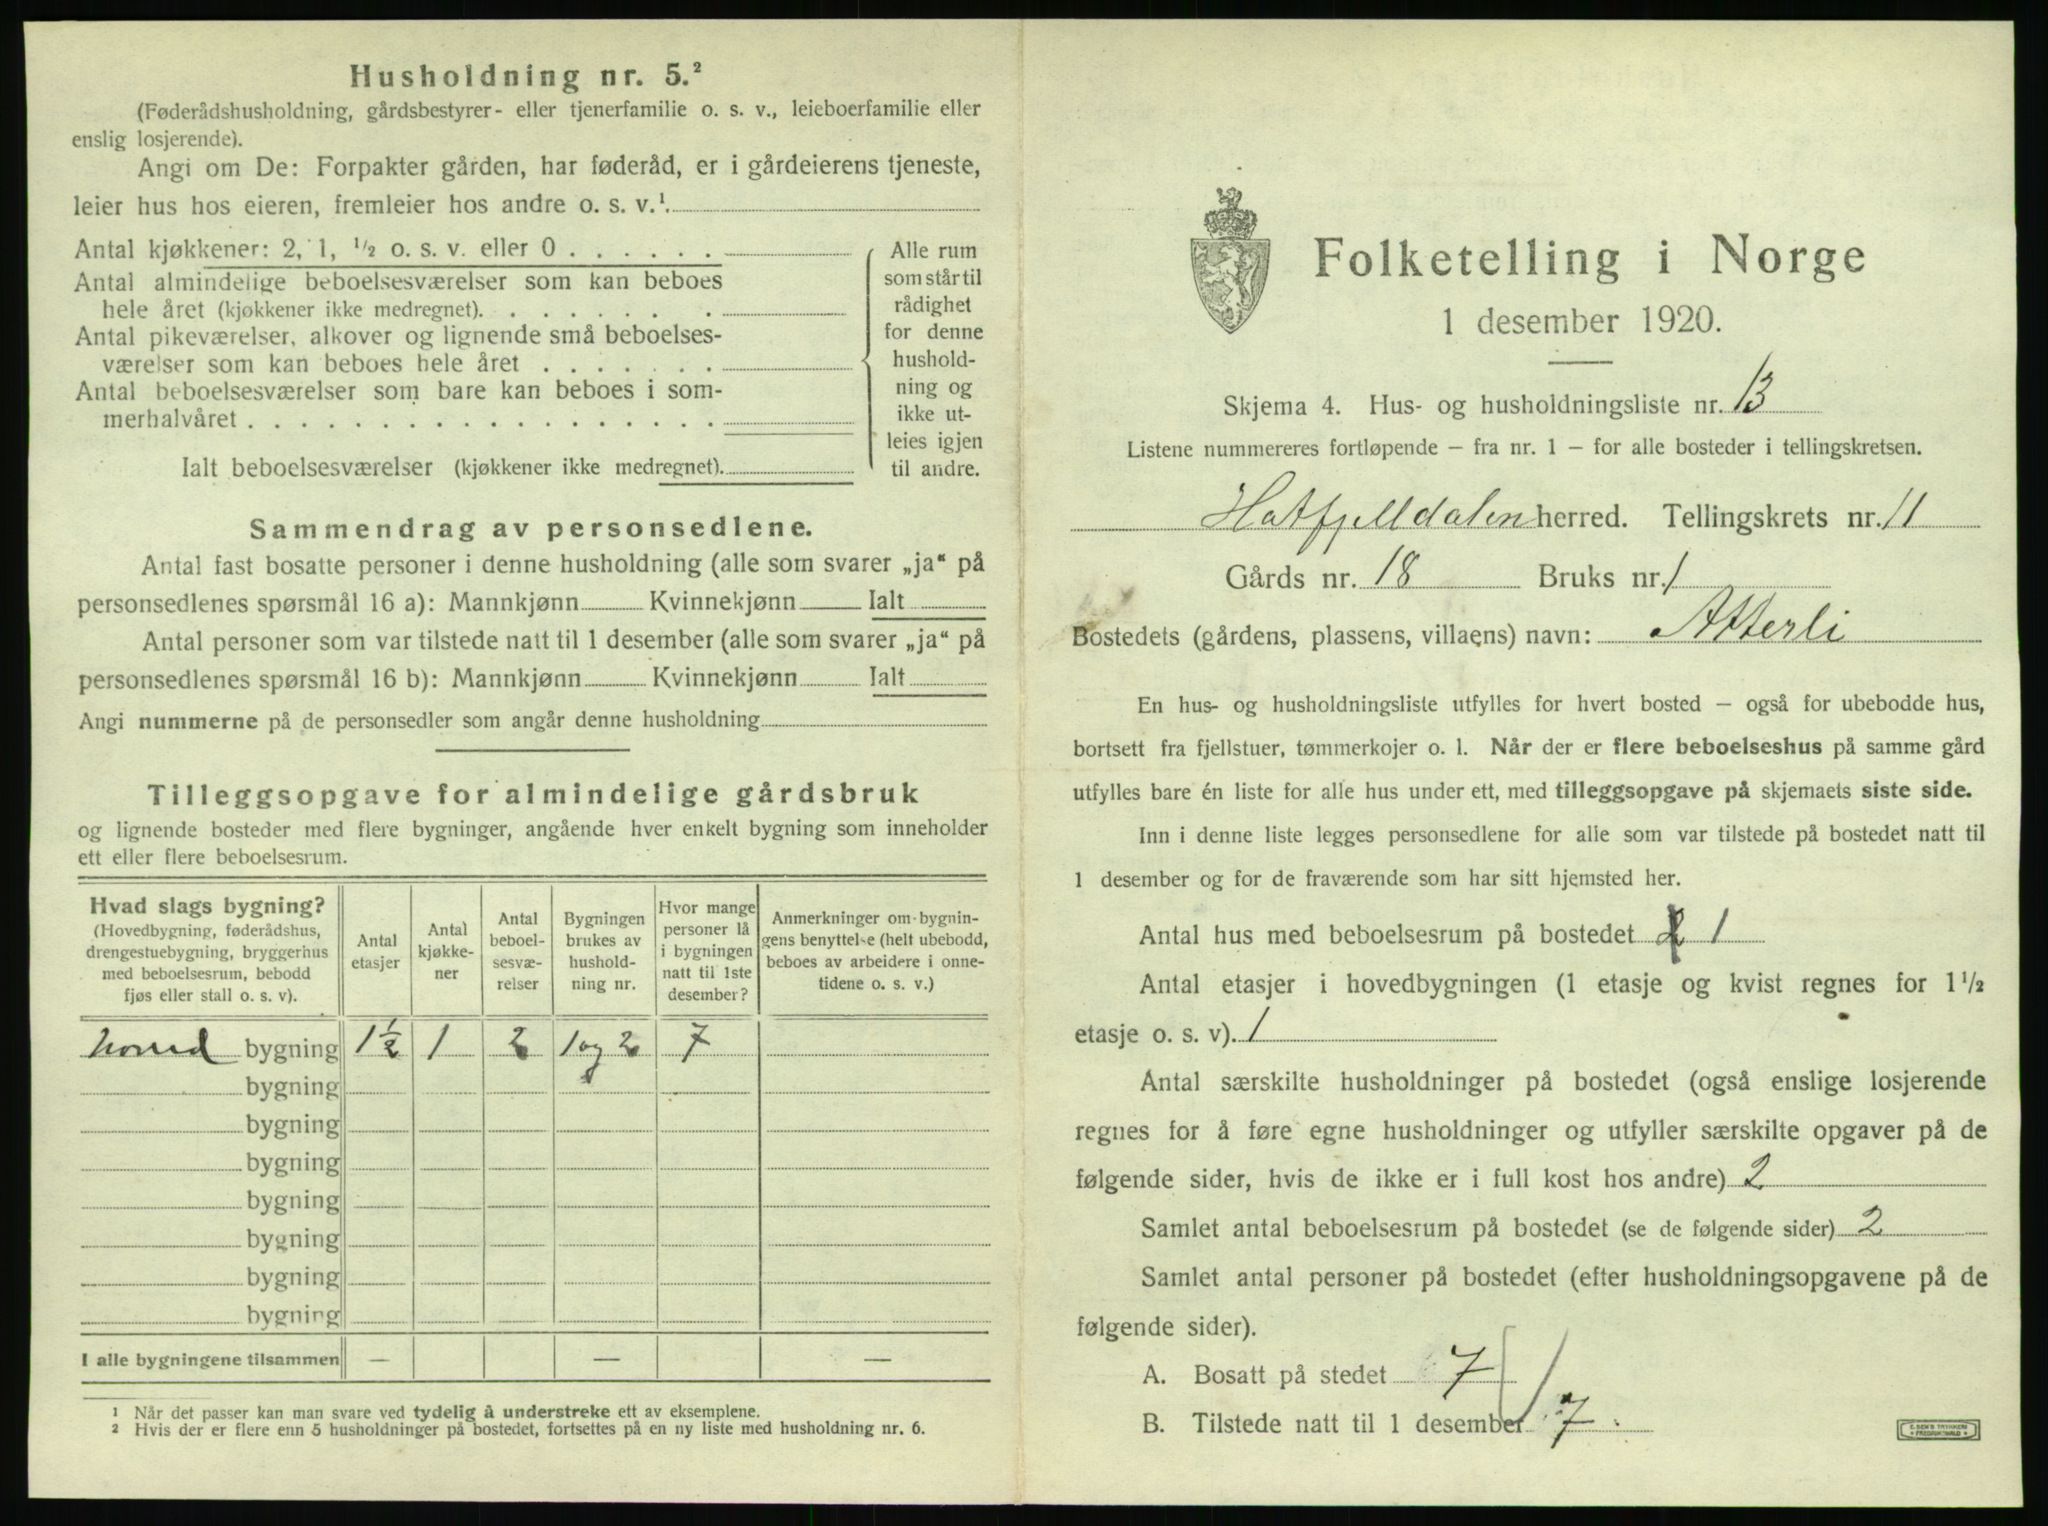 Husholdning nr. 5.²
(Føderådshusholdning, gårdsbestyrer- eller tjenerfamilie o. s. v., leieboerfamilie eller
enslig losjerende).
Angi om De: Forpakter gården, har føderåd, er i gårdeierens tjeneste,
leier hus hos eieren, fremleier hos andre o. s. v.¹
Antal kjøkkener: 2, 1, ¹/₂ o. s. v. eller 0
Antal almindelige beboelsesværelser som kan beboes
hele året (kjøkkener ikke medregnet).
Antal pikeværelser, alkover og lignende små beboelses-
værelser som kan beboes hele året
Antal beboelsesværelser som bare kan beboes i som-
merhalvåret
Ialt beboelsesværelser (kjøkkener ikke medregnet).
Alle rum
som står til
rådighet
for denne
hushold-
ning og
ikke ut-
leies igjen
til andre.
Sammendrag av personsedlene.
Antal fast bosatte personer i denne husholdning (alle som svarer „ja“ på
personsedlenes spørsmål 16 a): Mannkjønn Kvinnekjønn Ialt
Antal personer som var tilstede natt til 1 desember (alle som svarer „ja“ på
personsedlenes spørsmål 16 b): Mannkjønn Kvinnekjønn Ialt
Angi nummerne på de personsedler som angår denne husholdning
Tilleggsopgave for almindelige gårdsbruk
og lignende bosteder med flere bygninger, angående hver enkelt bygning som inneholder
ett eller flere beboelsesrum.
Hvad slags bygning?
(Hovedbygning, føderådshus,
drengestuebygning, bryggerhus
med beboelsesrum, bebodd
fjøs eller stall o. s. v).
Antal
etasjer
Antal
kjøkke-
ner
Antal
beboel-
sesvæ-
relser
Bygningen
brukes av
hushold-
ning nr.
Hvor mange
personer lå
i bygningen
natt til 1ste
desember?
Anmerkninger om bygnin-
gens benyttelse (helt ubebodd,
beboes av arbeidere i onne-
tidene o. s. v.)
hoved bygning 1½ 1 2 1 og 2 7
bygning
bygning
bygning
bygning
bygning
bygning
bygning
I alle bygningene tilsammen — — —
¹ Når det passer kan man svare ved tydelig å understreke ett av eksemplene.
² Hvis der er flere enn 5 husholdninger på bostedet, fortsettes på en ny liste med husholdning nr. 6.
Folketelling i Norge
1 desember 1920.
Skjema 4. Hus- og husholdningsliste nr. 13
Listene nummereres fortløpende – fra nr. 1 – for alle bosteder i tellingskretsen.
Hatfjelldalen herred. Tellingskrets nr. 11
Gårds nr. 18 Bruks nr. 1
Bostedets (gårdens, plassens, villaens) navn: Atterli
En hus- og husholdningsliste utfylles for hvert bosted – også for ubebodde hus,
bortsett fra fjellstuer, tømmerkojer o. l. Når der er flere beboelseshus på samme gård
utfylles bare én liste for alle hus under ett, med tilleggsopgave på skjemaets siste side.
Inn i denne liste legges personsedlene for alle som var tilstede på bostedet natt til
1 desember og for de fraværende som har sitt hjemsted her.
Antal hus med beboelsesrum på bostedet 2 1
Antal etasjer i hovedbygningen (1 etasje og kvist regnes for 1¹/₂
etasje o. s. v). 1
Antal særskilte husholdninger på bostedet (også enslige losjerende
regnes for å føre egne husholdninger og utfyller særskilte opgaver på de
følgende sider, hvis de ikke er i full kost hos andre) 2
Samlet antal beboelsesrum på bostedet (se de følgende sider) 2
Samlet antal personer på bostedet (efter husholdningsopgavene på de
følgende sider).
A. Bosatt på stedet 7
B. Tilstede natt til 1 desember 7